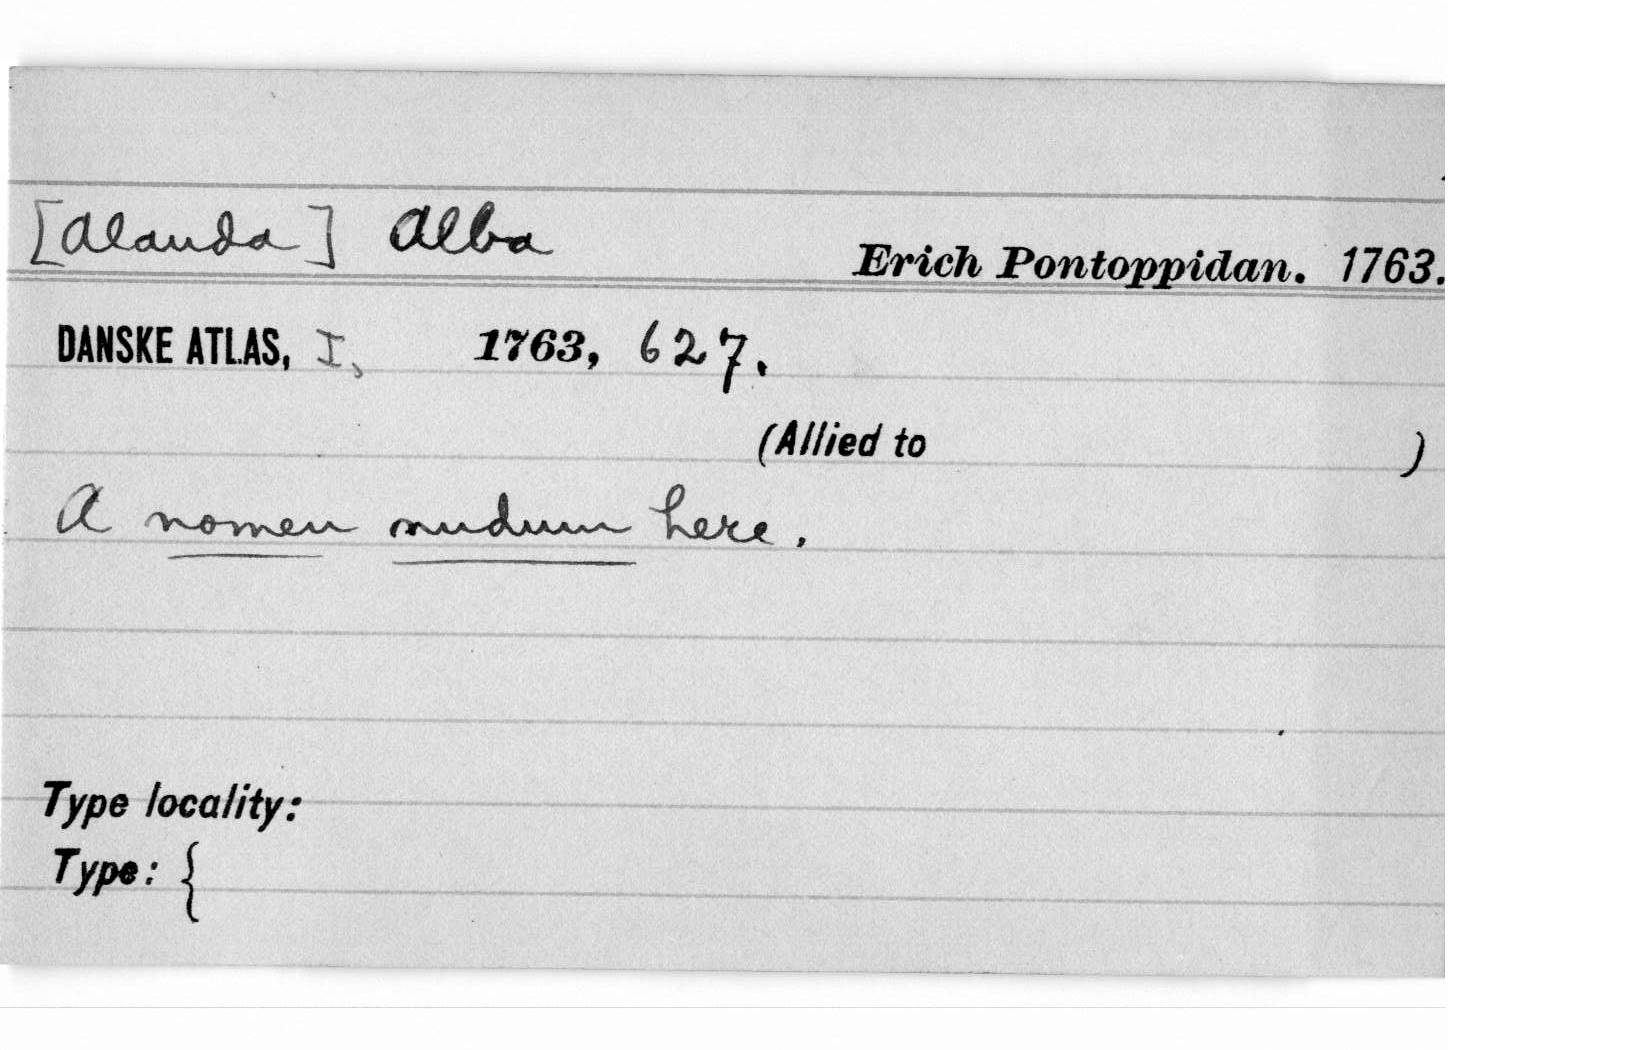 [Alauda] Alba Erich Pontoppidan. 1763.
DANSKE ATLAS, I, 1763, 627.
(Allied to )
A nomen nudum here.
Type locality:
Type: {